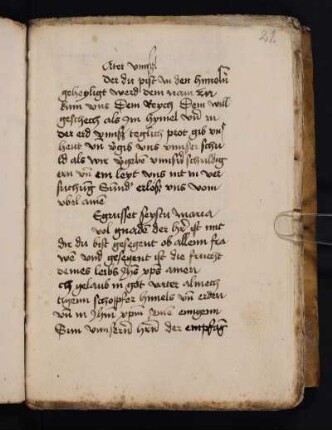 21
Ater vnnser
der du pist in den himeln
geheyligt werd dein nam zu
kum vns Dein Reych Dein will
geschech als Im hymel vnd in
der erd vnnser teglich prot gib vns
heut vnd vergib vns vnnser schu
ld als wir vergeben vnnsern schuldig
ern vnd ein leyt vns nit in ver
suchung Sunder erlöß vns vom
vbel amen
Egrusset seystu maria
vol gnaden der her ist mit
dir du bist gesegent ob allenn fra
wen vnd gesegent ist die frucht
deines leibs Jhs xps amen
Ch gelaub in got vater almech
tigenn schopffer himels vnd erden
vnd in Jhm xpm seine einigenn
Sun vnnsernn hern der empfang